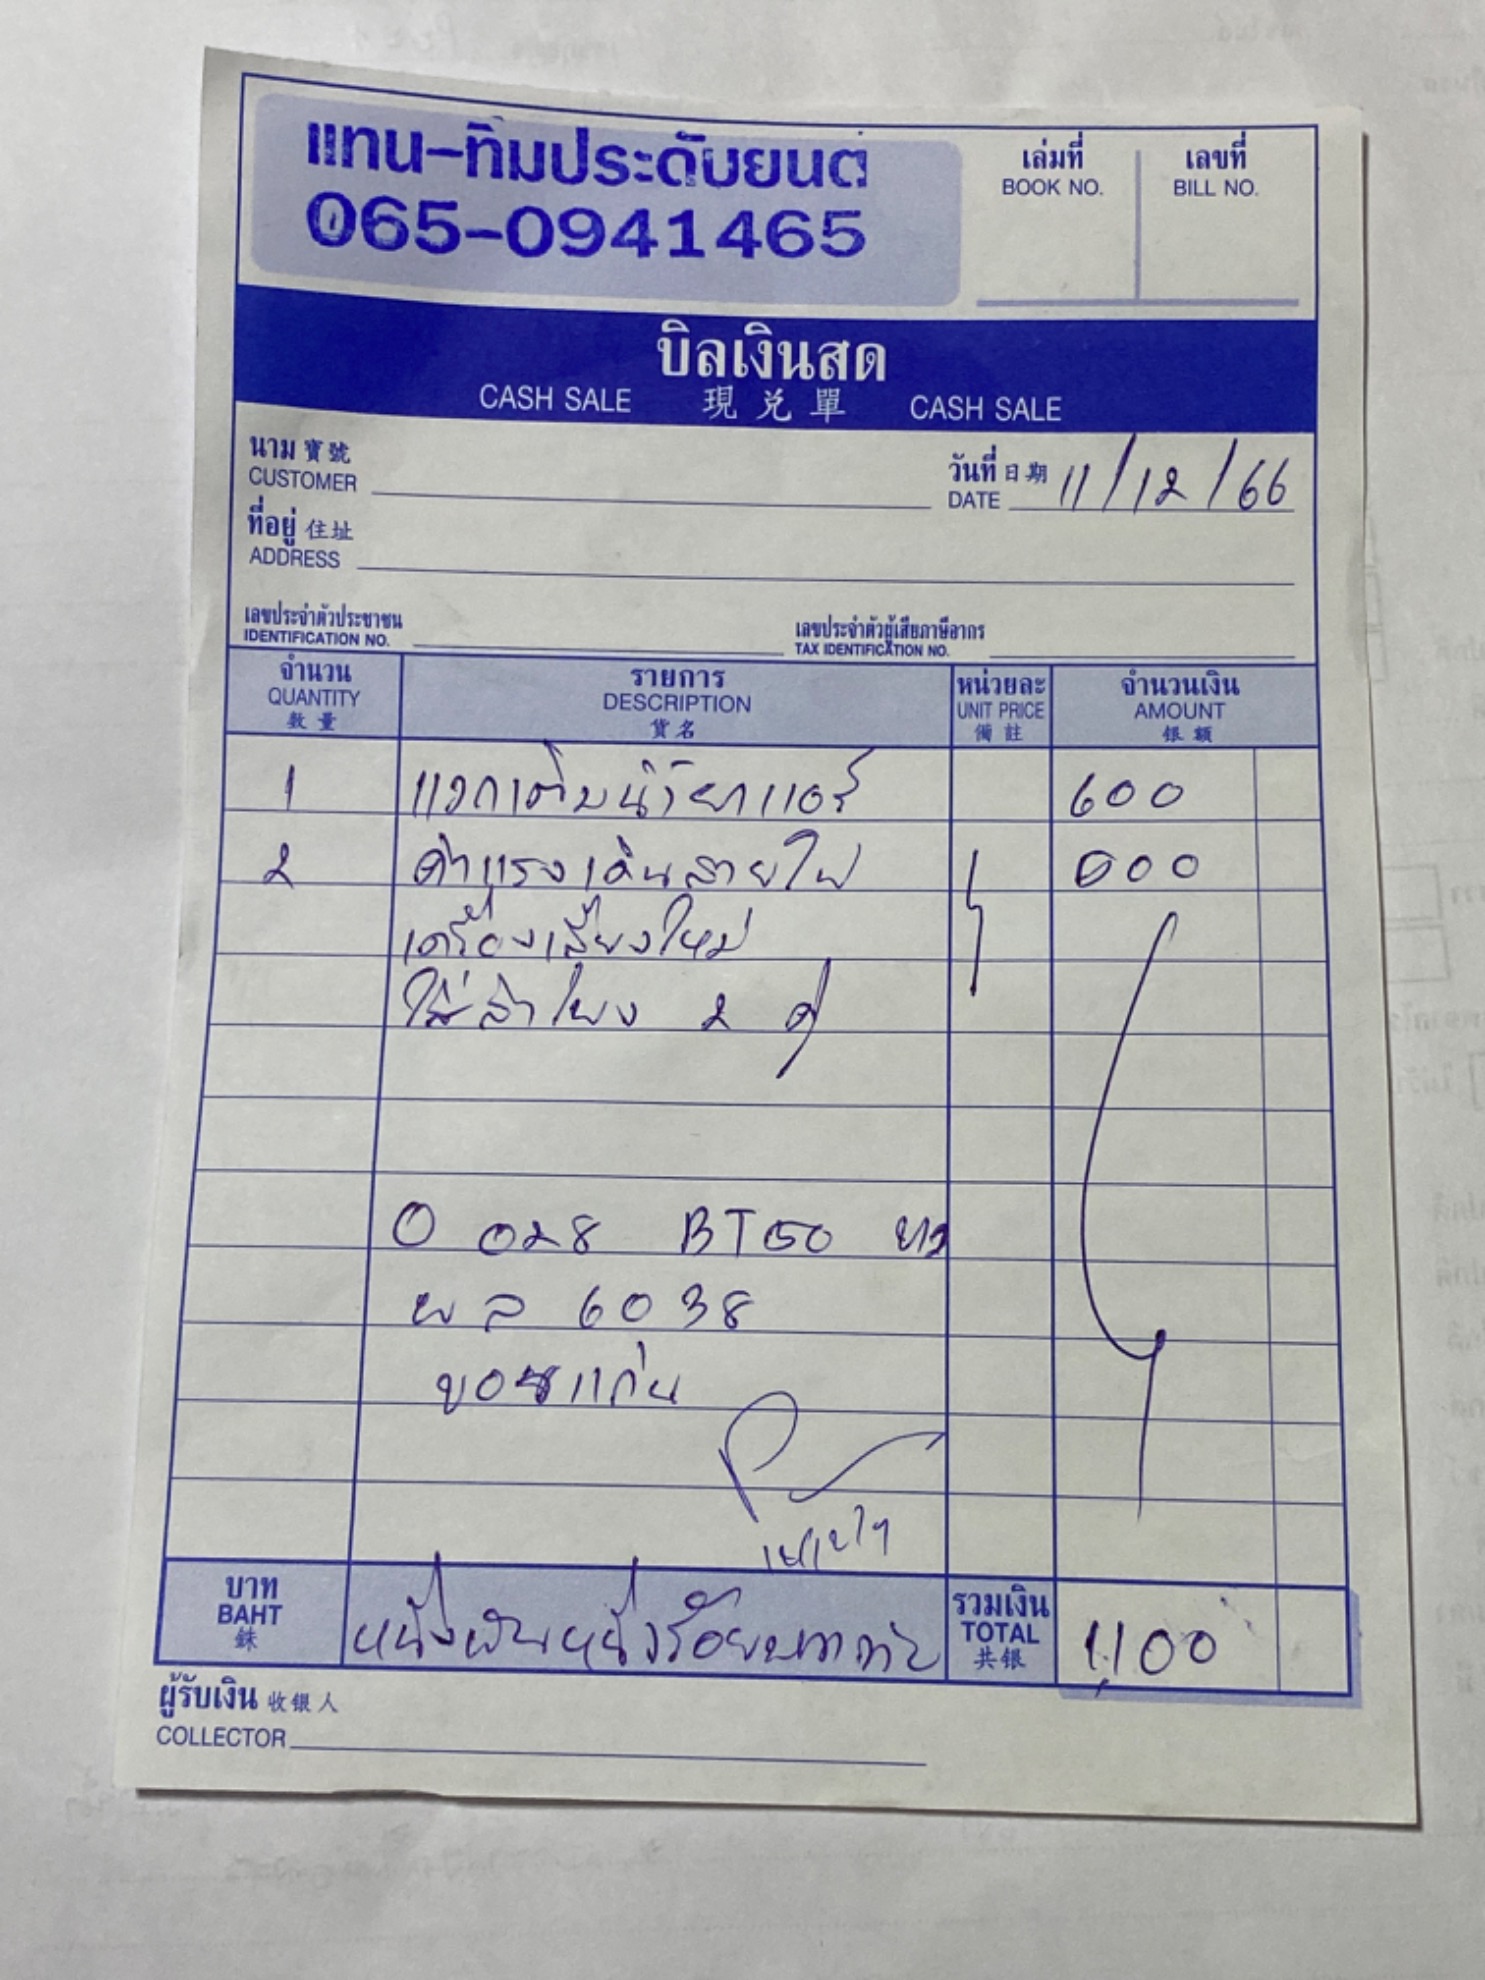 แทน-ทิมประดับยนต์
065-0941465
เล่มที่ เลขที่
BOOK NO. BILL NO.
บิลเงินสด
CASH SALE 現兑單 CASH SALE
นาม 寶號
CUSTOMER
วันที่ 日期
DATE 11/12/66
ที่อยู่ 住址
ADDRESS
เลขประจำตัวประชาชน
IDENTIFICATION NO.
เลขประจำตัวผู้เสียภาษีอากร
TAX IDENTIFICATION NO.
จำนวน รายการ หน่วยละ จำนวนเงิน
QUANTITY DESCRIPTION UNIT PRICE AMOUNT
數量 貨名 備註 银额
1 แวคเติมน้ำยาแอร์ 600
2 ค่าแรงเดินสายไฟ 500
เครื่องเสียงใหม่
ใส่ลำโพง 2 คู่
O 028 BT50
ผล 6038
ขอนแก่น
บาท หนึ่งพันหนึ่งร้อยบาทถ้วน รวมเงิน 1,100
BAHT TOTAL
銖 共银
ผู้รับเงิน 收银人
COLLECTOR